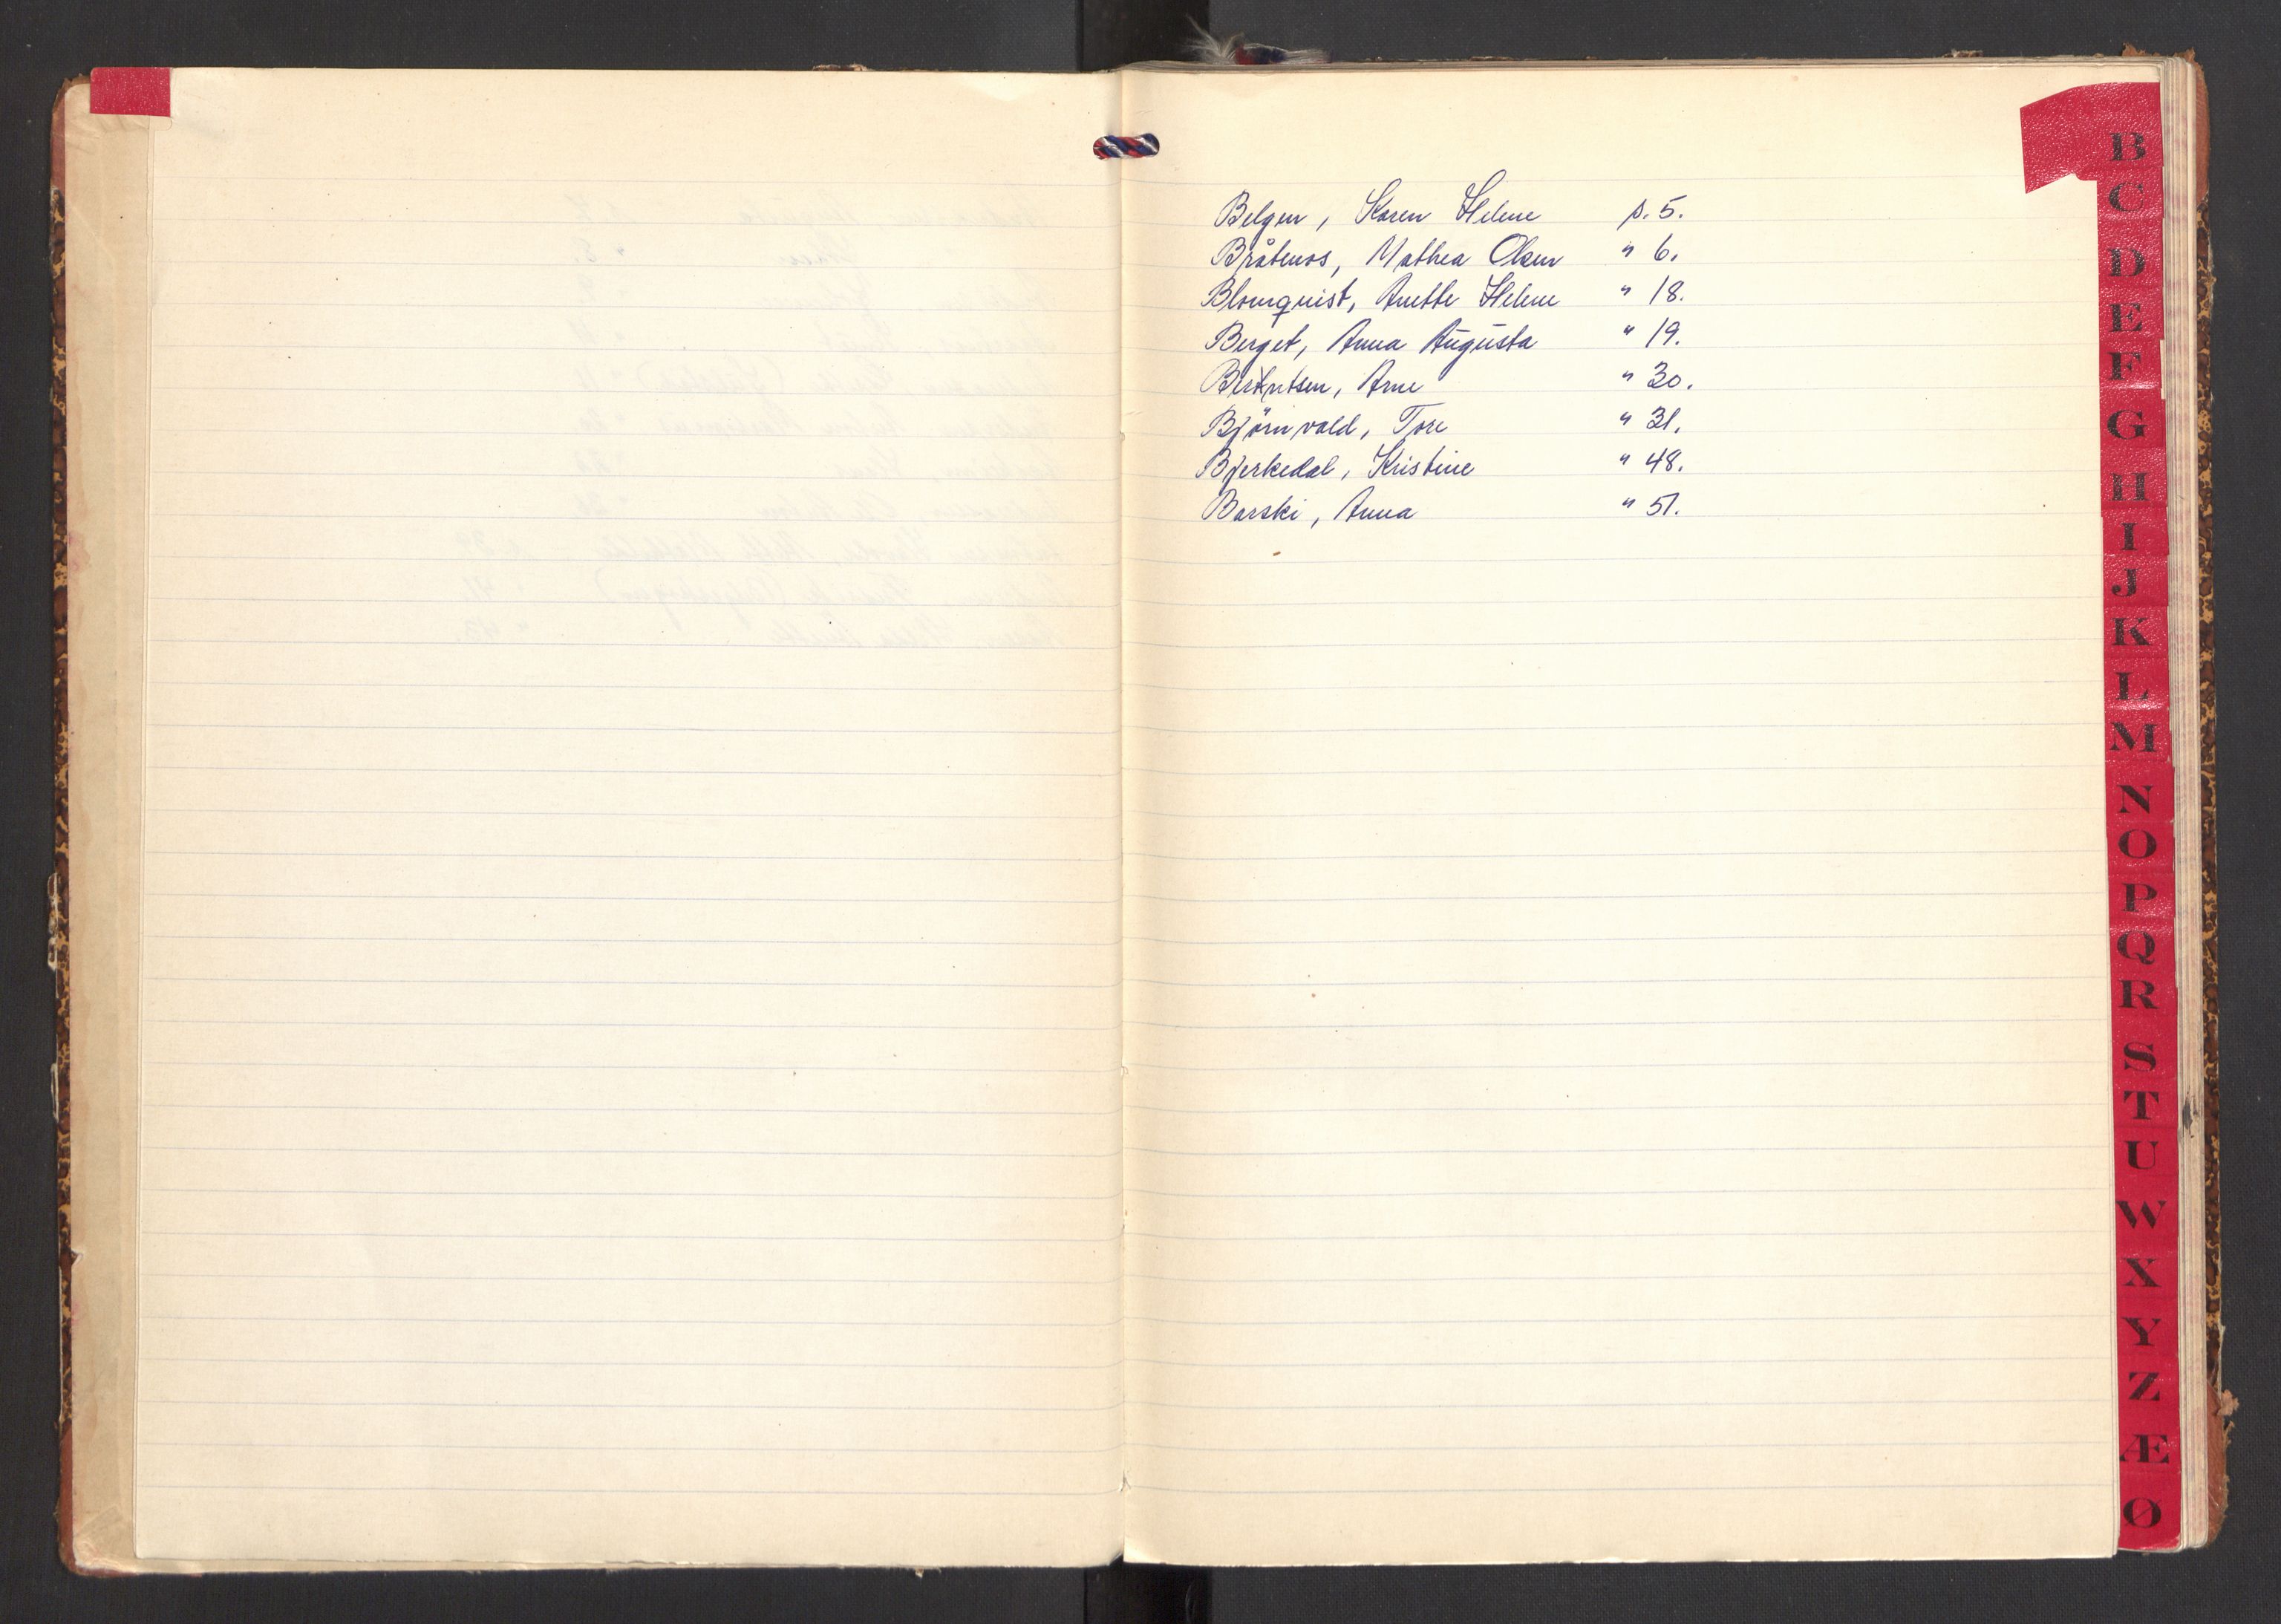 Belgen, Karen Helene p. 5.
Bråtenos, Mathea Olsen " 6.
Blomquist, Anette Helene " 18.
Berget, Anna Augusta " 19.
Berntsen, Arne " 30.
Björnvald, Tore " 31.
Bjerkedal, Kristine " 48.
Barski, Anna " 51.
B
C
D
E
F
G
H
I
J
K
L
M
N
O
P
Q
R
S
T
U
W
X
Y
Z
Æ
Ø